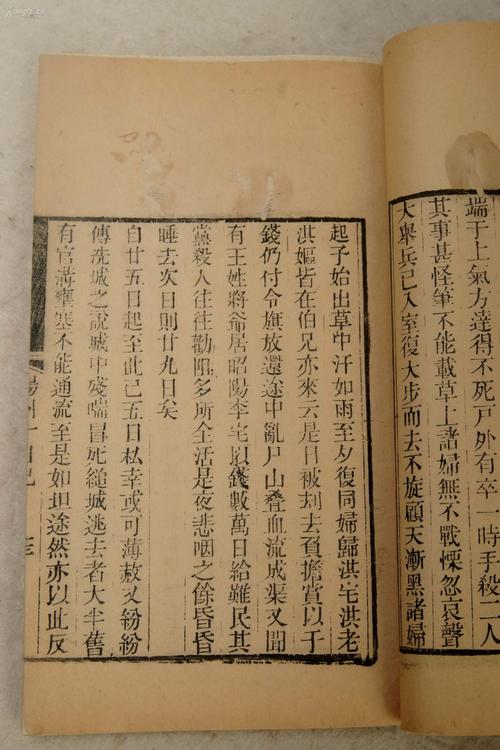 端于上氣方達得不死戸外有卒一時手殺二人
其事甚怪筆不能載草上諸婦無不戰慄忽哀聲
大舉兵已入室復大步而去不旋顧天漸黑諸婦
起子始出草中汗如雨至夕復同婦歸洪宅洪老
洪嫗皆在伯兄亦來云是日被刦去負擔賞以千
錢仍付令旗放還途中亂尸山疊血流成渠又聞
有王姓將爺居昭陽李宅以錢數萬日給難民其
黨殺人往往勸阻多所全活是夜悲咽之餘昏昏
睡去次日則廿九日矣
自廿五日起至此已五日私幸或可薄赦又紛紛
傳洗城之說城中殘喘冒死縋城逃去者大半舊
有官溝壅塞不能通流至是如坦途然亦以此反
揚州十日記